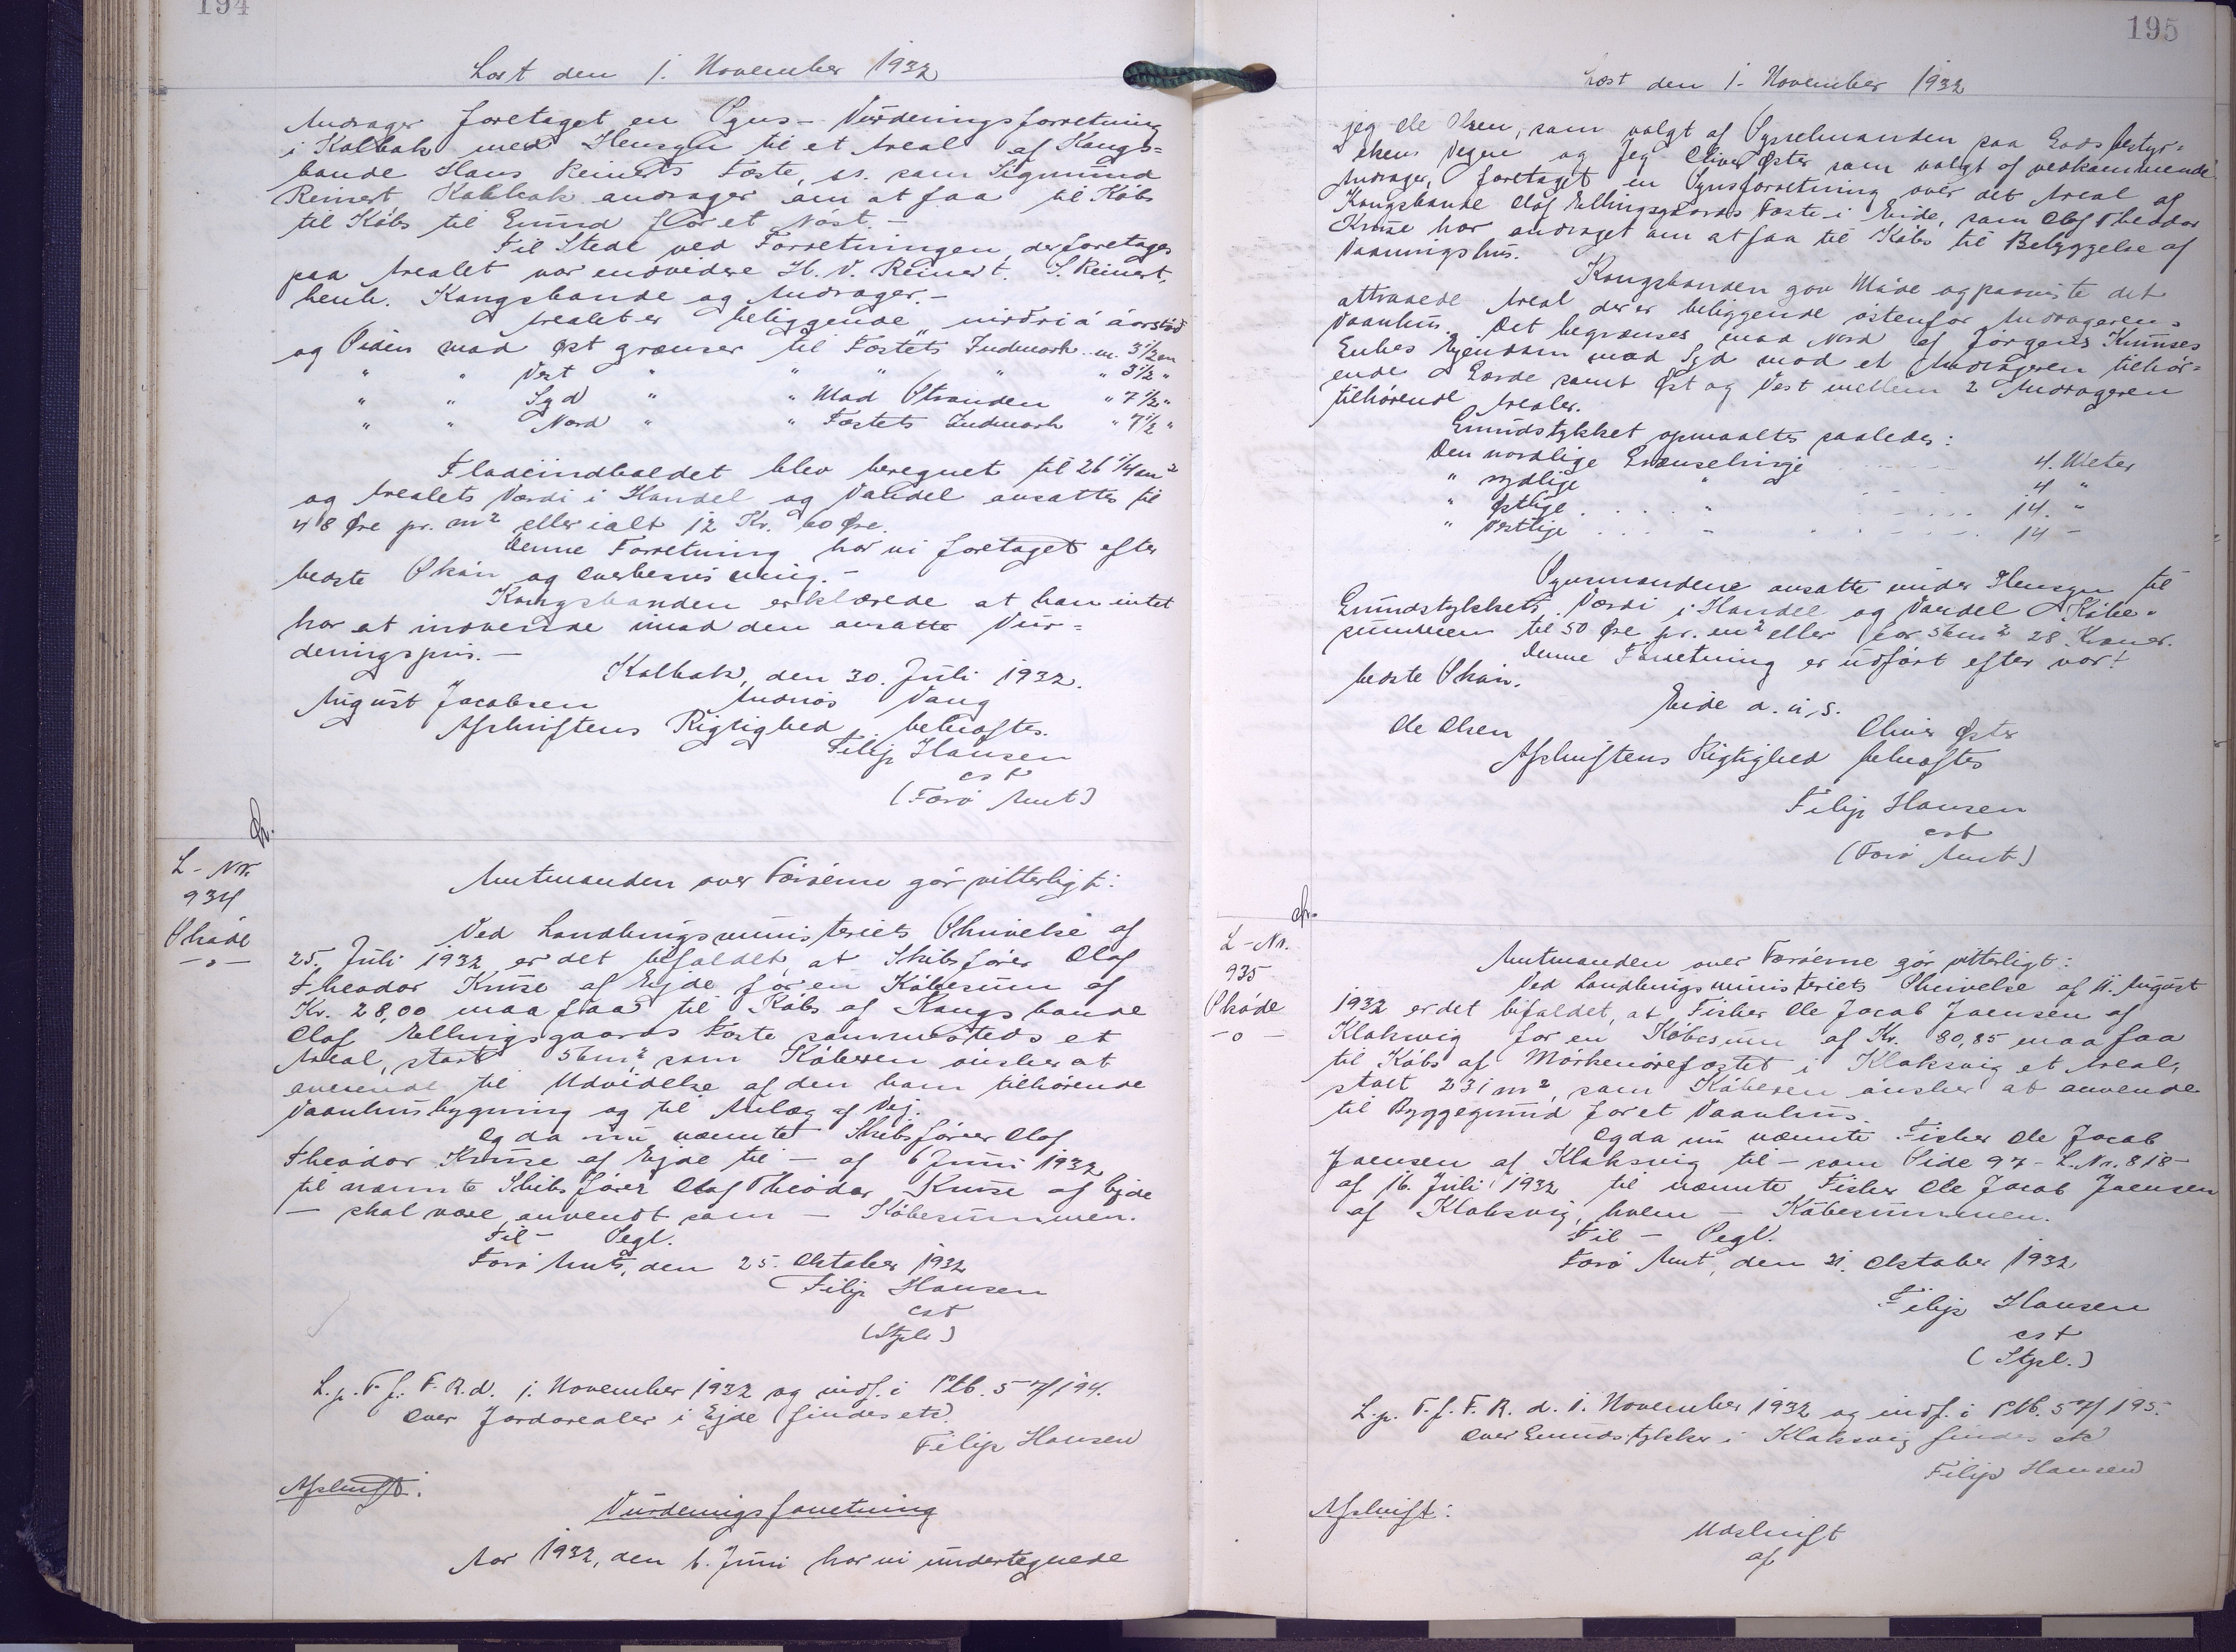 194
Læst den 1. November 1932
Andrager foretaget en Syns- Vurderingsforretning
i Kalbak med Hensyn til et Areal af Kongs=
bonde Hans Reinerts Fæste, som Sigmund
Reinert, Kalbak andrager om at faa til Købs
til Købs til Grund for et Nøst.-
Til Stede ved Forretningen, der foretages
paa Arealet var endvidere H. V. Reinert. S. Reinert,
henh. Kongsbonde og Andrager.-
Arealet er beliggende
og Siden mod Øst grænser til Fæstets Indmark m. 3 1/2 m
" " Vest " " " " " 3 1/2 "
" " Syd " " Mod Stranden " 7 1/2 "
" " Nord " " Fæstets Indmark " 7 1/2 "
Fladeindholdet blev beregnet til 26 1/4 m²
og Arealets Værdi i Handel og Vandel ansattes til
48 Øre pr. m² eller ialt 12 Kr. 60 Øre.
Denne Forretning har vi foretaget efter
bedste Skøn og Overbevisning.-
Kongsbonden erklærede at han intet
har at indvende imod den ansatte Vur=
deringspris.-
Kalbak, den 30. Juli 1932.
August Jacobsen Andrias Vang
Afskriftens Rigtighed bekræftes.
Filip Hansen
cst
(Færø Amt)
L-Nr.
934
Skøde
-o-
Amtmanden over Færøerne gør vitterligt:
Ved Landbrugsministeriets Skrivelse af
25. Juli 1932 er det bifaldet, at Skibsfører Olaf
Theodor Kruse af Ejde for en Købesum af
Kr. 28,00 maa faa til Købs af Kongsbonde
Olaf Ellingsgaards Fæste sammesteds et
Areal, stort 56m² som Køberen ønsker at
anvende til Udvidelse af den ham tilhørende
Vaanhusbygning og til Anlæg af Vej.
Og da nu nævnte Skibsfører Olaf
Theodor Kruse af Ejde til - af 6 Juni 1932
til nævnte Skibsfører Olaf Theodor Kruse af Ejde
- skal være anvendt som - Købesummen.
Til - Segl.
Færø Amt, den 25. Oktober 1932
Filip Hansen
cst
(Stpl.)
L. p. T. f. F. R. d. 1. November 1932 og indf. i Ptb. 5 194.
Over Jordarealer i Ejde findes etc.
Filip Hansen
Afskrift:
Vurderingsforretning
Aar 1932, den 6. Juni har vi undertegnede
195
Læst den 1. November 1932
jeg Ole Olsen, som valgt af Sysselmanden paa Godsbestyr=
elsens Vegne og Jeg Oliver Øster som valgt af vedkommende
Andrager, foretaget en Synsforretning over det Areal af
Kongsbonde Olaf Ellingsgaards Fæste i Eide, som Olaf Theodor
Kruse har andraget om at faa til Købs til Bebyggelse af
Vaaningshus.
Kongsbonden gav Møde og paaviste det
attraaede Areal der er beliggende østenfor Andragerens
Vaanhus. Det begrænses mod Nord af Jørgens Kruuses
Enkes Ejendom mod Syd mod et Andrageren tilhør=
ende Gærde samt Øst og Vest mellem 2 Andrageren
tilhørende Arealer.
Grundstykket opmaaltes saaledes:
Den nordlige Grænselinje 4. Meter
" sydlige " 4 "
" østlige " 14. "
" vestlige - 14 -
Synsmændene ansatte under Hensyn til
Grundstykkets Værdi i Handel og Vandel Købe-
summen til 50 Øre pr. m² eller for 56m² 28. Kroner.
Denne Forretning er udført efter vort
bedste Skøn.
Eide d. u. s.
Ole Olsen Oliver Øster
Afskriftens Rigtighed bekræftes
Filip Hansen
cst
(Færø Amt)
L-Nr.
935
Skøde
-o-
Amtmanden over Færøerne gør vitterligt:
Ved Landbrugsministeriets Skrivelse af 11. August
1932 er det bifaldet, at Fisker Ole Jacob Joensen af
Klaksvig for en Købesum af Kr. 80,85 maa faa
til Købs af Mørkenørefæstet i Klaksvig et Areal,
stort 231 m², som Køberen ønsker at anvende
til Byggegrund for et Vaanhus.
Og da nu nævnte Fisker Ole Jacob
Joensen af Klaksvig til - som Side 97 - L. Nr. 818 -
af 16. Juli 1932 til nævnte Fisker Ole Jacob Joensen
af Klaksvig, hvem - Købesummen.
Til - Segl.
Færø Amt, den 31. Oktober 1932
Filip Hansen
cst
(Stpl.)
L. p. T. f. F. R. d. 1. November 1932 og indf. i Ptb. 5 195.
Over Grundstykker i Klaksvig findes etc
Filip Hansen
Afskrift:
Udskrift
af